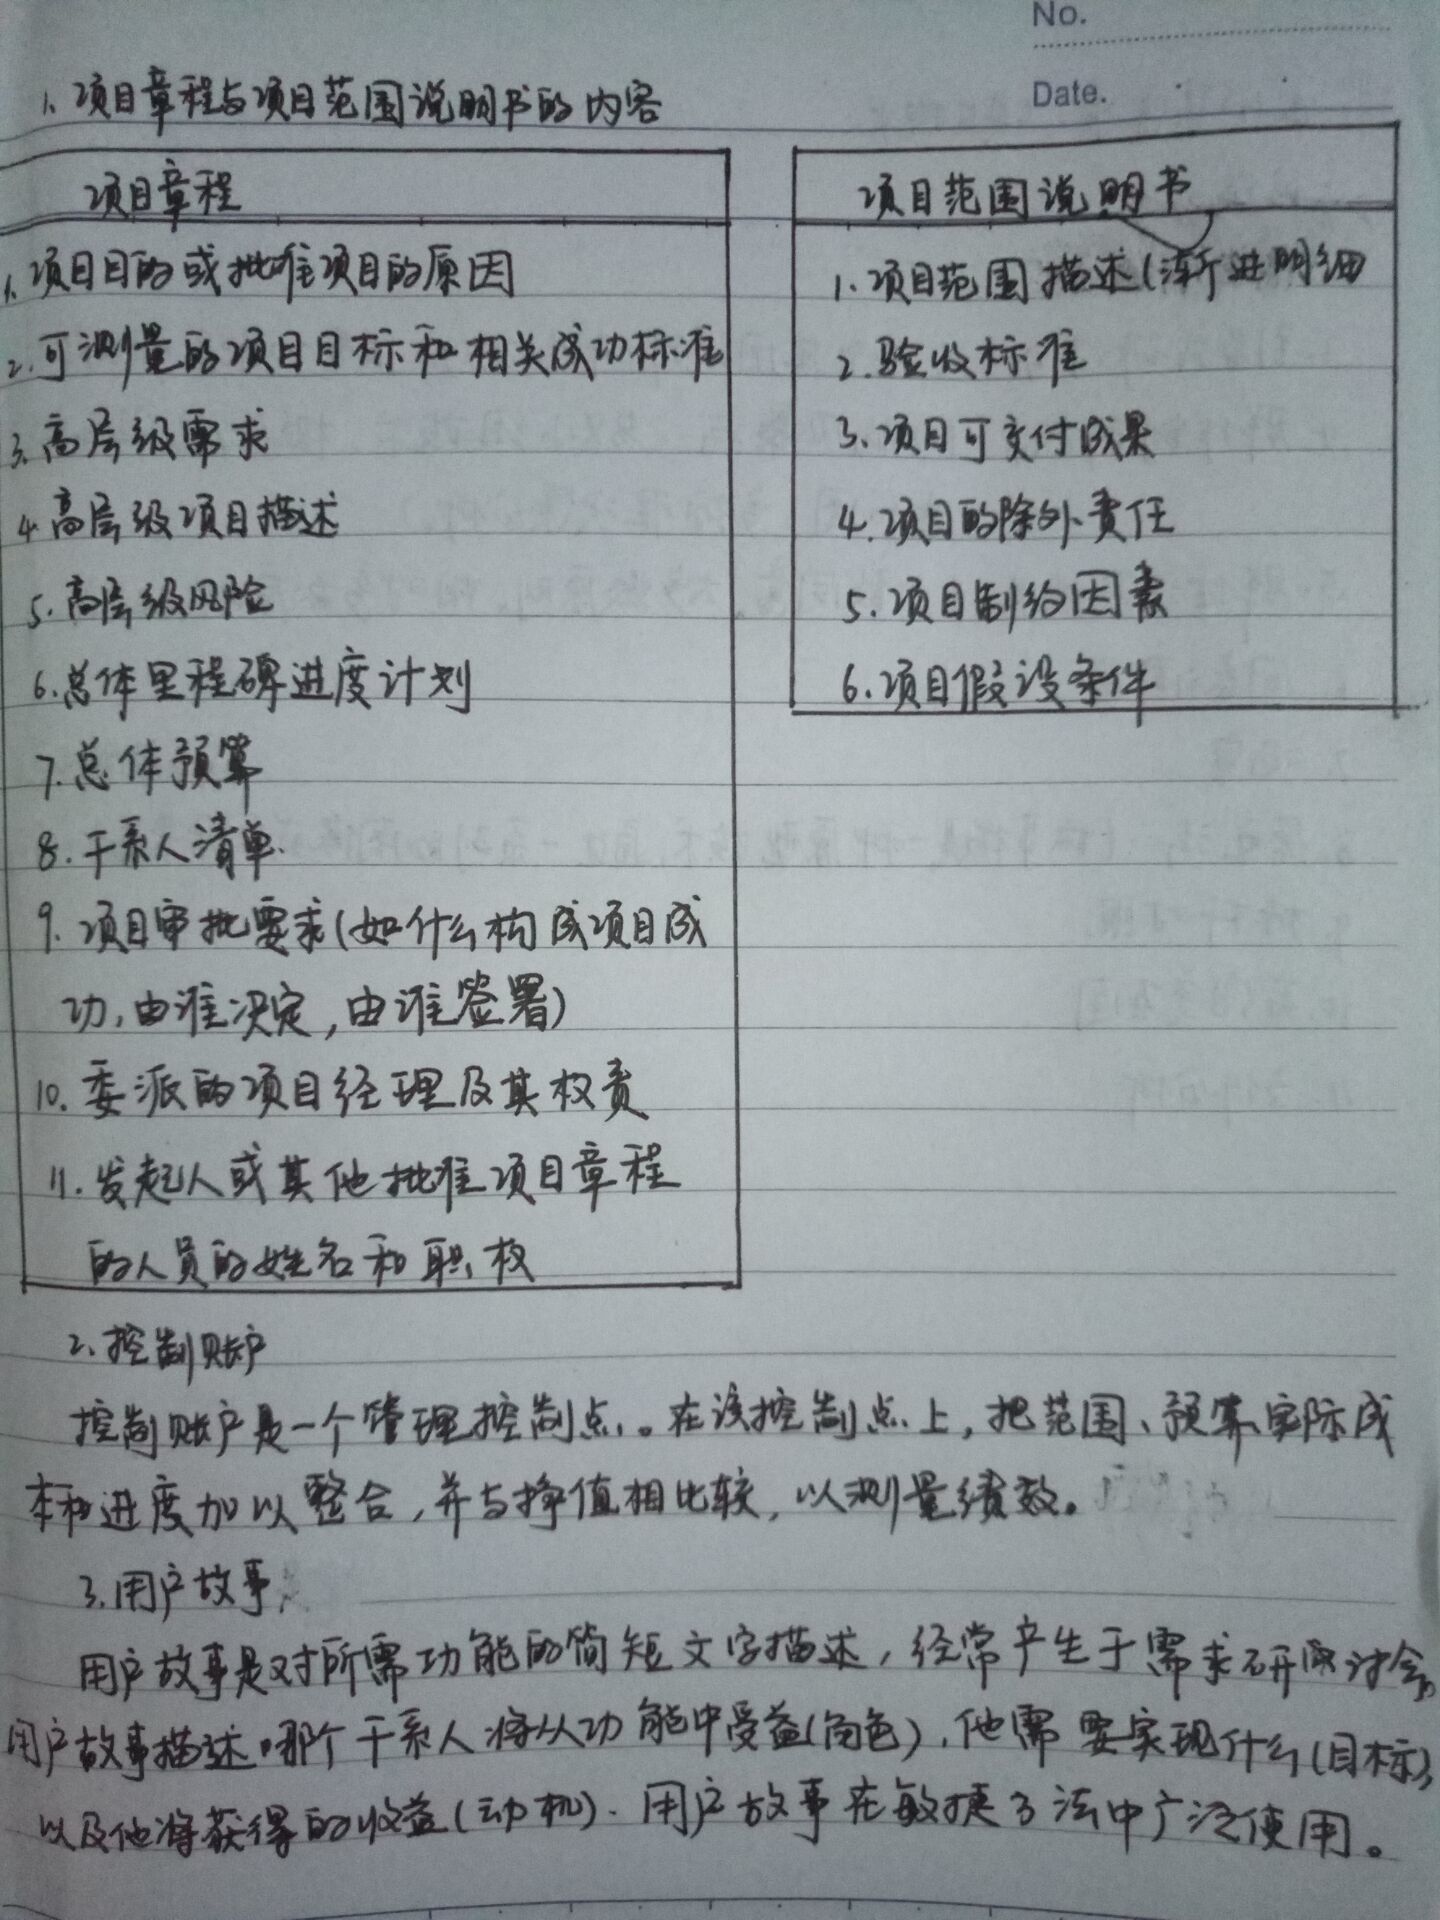 No.
Date.
1、项目章程与项目范围说明书的内容
项目章程
1、项目目的或批准项目的原因
2、可测量的项目目标和相关成功标准
3、高层级需求
4、高层级项目描述
5、高层级风险
6、总体里程碑进度计划
7、总体预算
8、干系人清单
9、项目审批要求(如什么构成项目成
功,由谁决定,由谁签署)
10、委派的项目经理及其权责
11、发起人或其他批准项目章程
的人员的姓名和职权
项目范围说明书
1、项目范围描述(渐进明细
2、验收标准
3、项目可交付成果
4、项目的除外责任
5、项目制约因素
6、项目假设条件
2、控制账户
控制账户是一个管理控制点。在该控制点上,把范围、预算、实际成
本和进度加以整合,并与挣值相比较,以测量绩效。
3、用户故事
用户故事是对所需功能的简短文字描述,经常产生于需求研讨会。
用户故事描述哪个干系人将从功能中受益(角色),他需要实现什么(目标),
以及他将获得的收益(动机)、用户故事在敏捷方法中广泛使用。